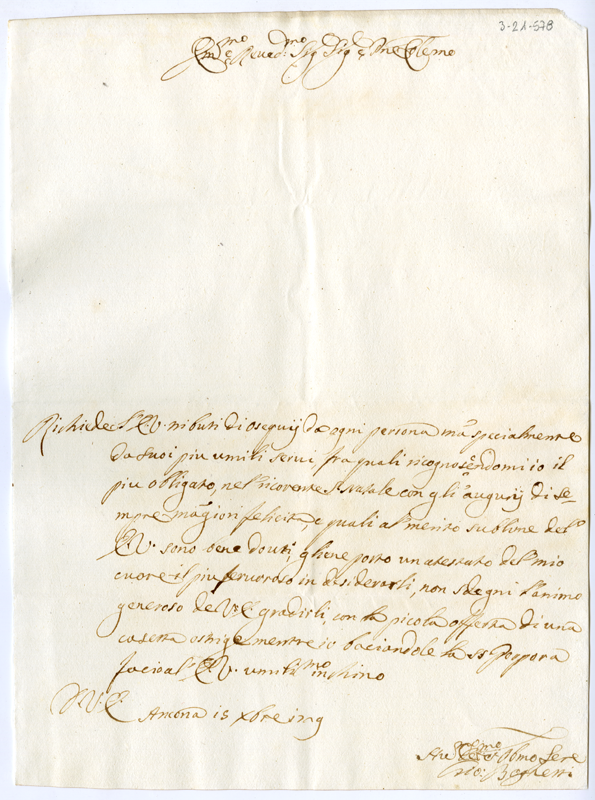 3-21-578
Em.mo e Reved.mo Sig Sig e Prne Colemo
Richiede l'E.V. tributi di osequij da ogni persona ma specialmente
da suoi piu umili servi fra quali ricognoscendomi io il
piu obligato, nel ricorente S. Natale con gli augurij di se-
mpre magiori felicita, e quali al merito sublime del
E.V. sono bene douti, gliene porto un atestato del mio
cuore il piu fervoroso in desiderarli, non sdegni l'animo
generoso de V.E. gradirli, con la picola offerta di una
casetta ostrige mentre io baciandole la S. Porpora
facio al E.V. umilis.mo inchino
D V.E.
Ancona 15 Xbre